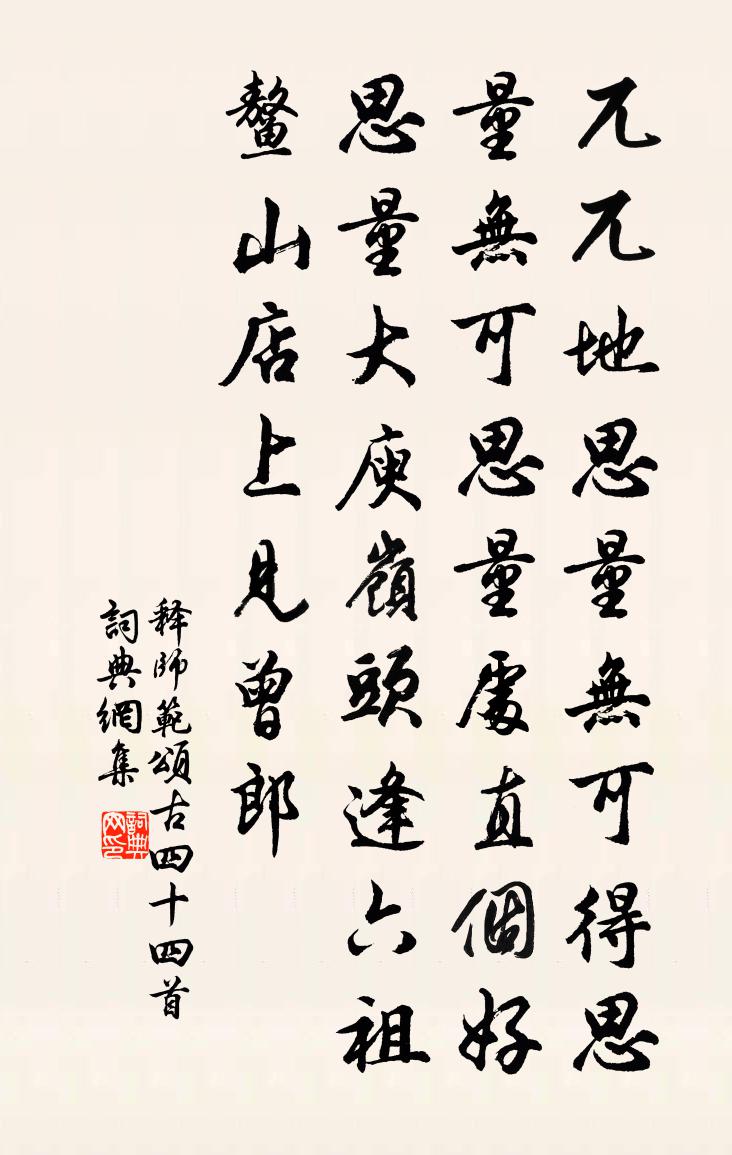 兀兀地思量無可得思
量無可思量處直個好
思量大庾嶺頭逢六祖
鼇山店上見曾郎
释師範頌古四十四首
詞典網集
詞典网印